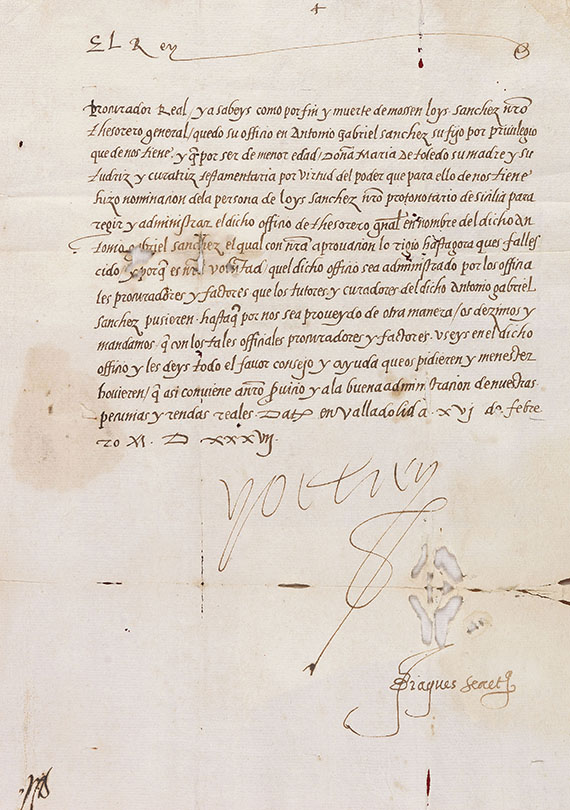 El Rey
Procurador Real / ya sabeys como por fin y muerte de mossen loys sanchez nro
thesorero general / quedo su officio en Antonio gabriel sanchez su fijo por privilegio
que de nos tiene / y q̃ por ser de menor edad / Doña Maria De toledo su madre y su
tudriz y curatriz testamentaria por virtud del poder que para ello de nos tiene
hizo nominacion dela persona de loys sanchez nro protonotario de sicilia para
regir y administrar el dicho officio de thesorero gnal en nombre del dicho An
tonio gabriel sanchez el qual con nra aprovacion lo rigio hastagora ques falles
cido / y porq̃ es nra voluntad / quel dicho officio sea administrado por los officia
les procuradores y factores que los tutores y curadores del dicho Antonio gabriel
Sanchez pusieren hastaq̃ por nos sea proveydo de otra manera / os dezimos y
mandamos q̃ con los tales officiales procuradores y factores useys en el dicho
officio y les deys todo el favor consejo y ayuda que os pidieren y menester
hovieren / q̃ asi conviene a nro servicio y ala buena admin stracion de nuestras
pecunias y rendas reales. Dat en Valladolid a. xvj de febre
ro M. D xxxvij.
yo el rey